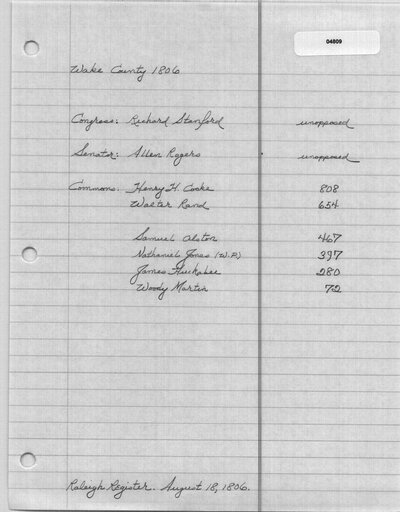 04809
Wake County 1806
Congress: Richard Stanford unopposed
Senator: Allen Rogers unopposed
Commons: Henry H. Cooke 808
Walter Rand 654
Samuel Alston 467
Nathaniel Jones (W.P.) 397
James Huckabee 280
Woody Martin 72
Raleigh Register. August 18, 1806.